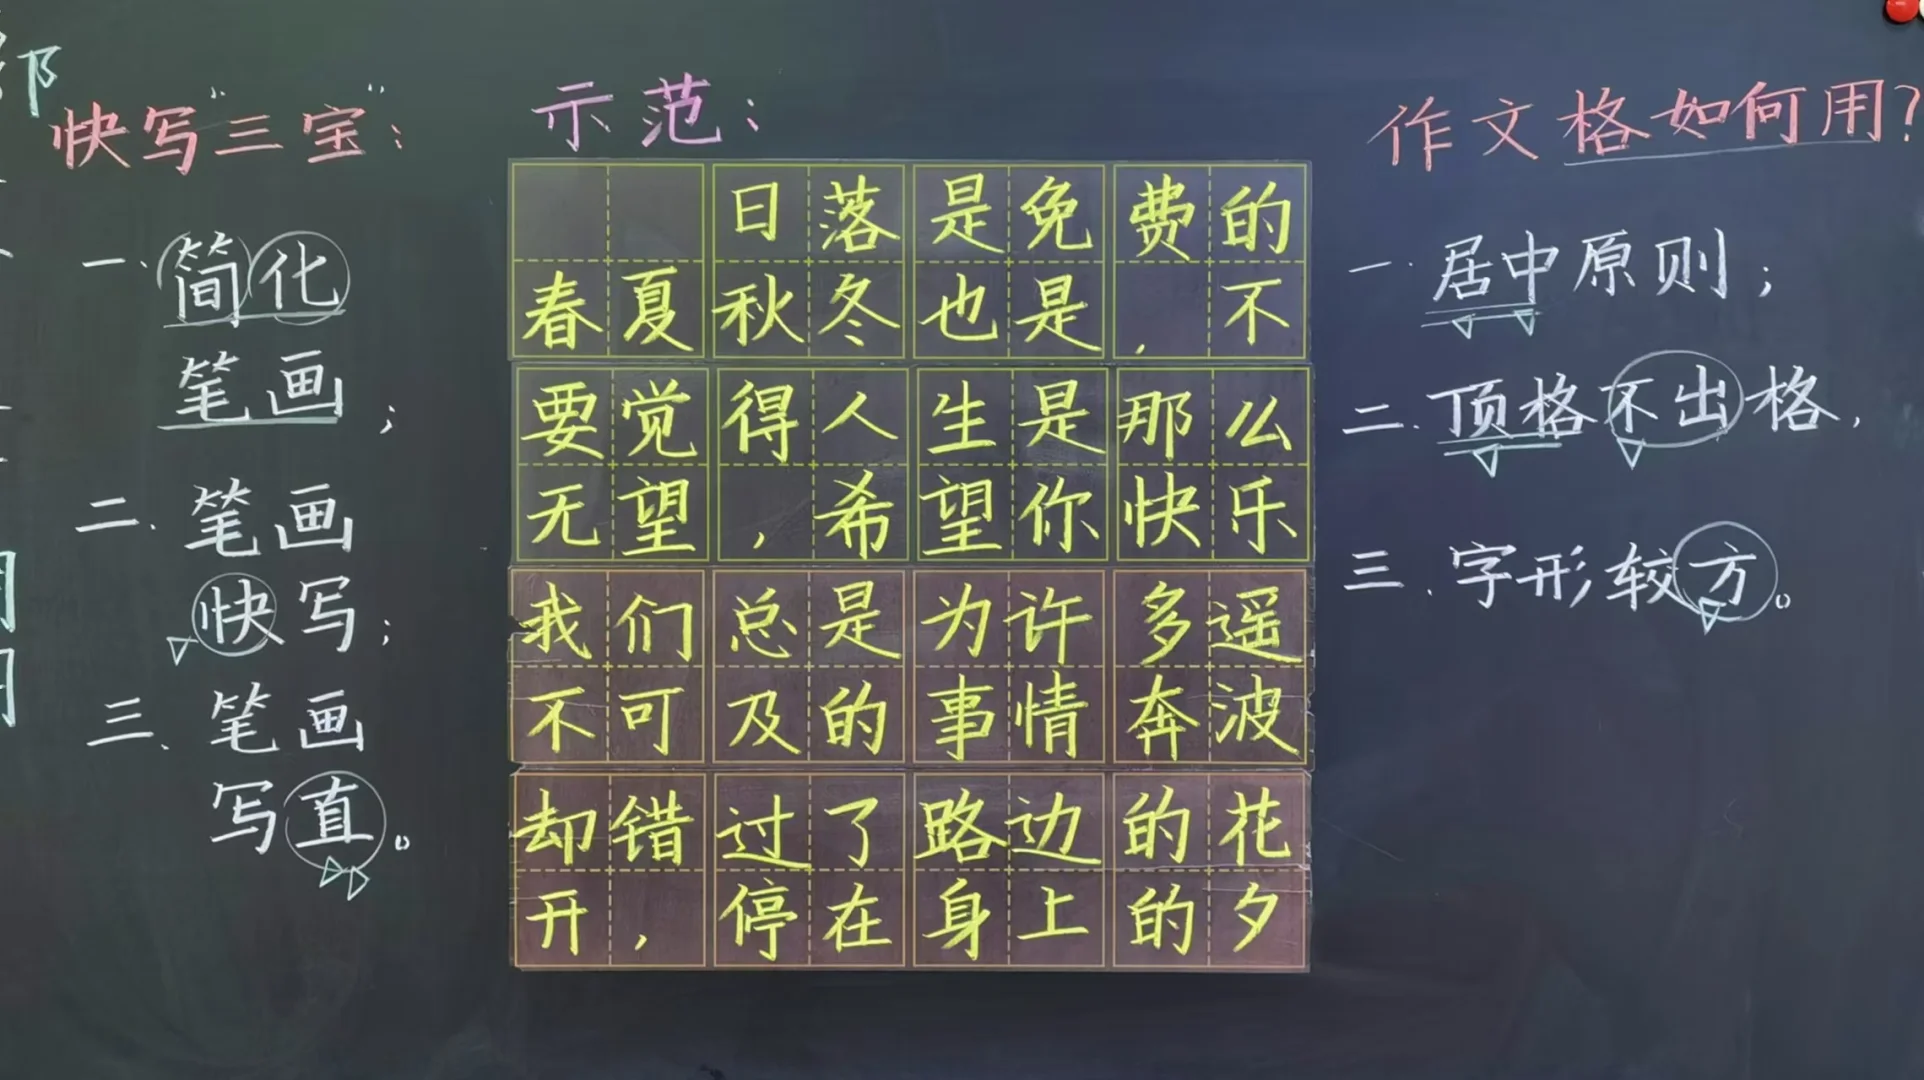 快写“三宝”：
一.简化
笔画；
二.笔画
快写；
三.笔画
写直。
示范：
日落是免费的
春夏秋冬也是，不
要觉得人生是那么
无望，希望你快乐
我们总是为许多遥
不可及的事情奔波
却错过了路边的花
开，停在身上的夕
作文格如何用?
一.居中原则；
二.顶格不出格，
三.字形较方。